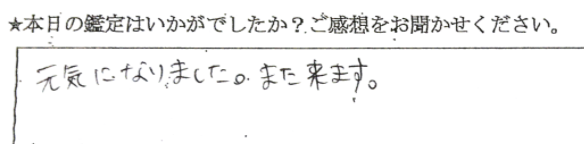 ★本日の鑑定はいかがでしたか？ご感想をお聞かせください。
元気になりました。また来ます。